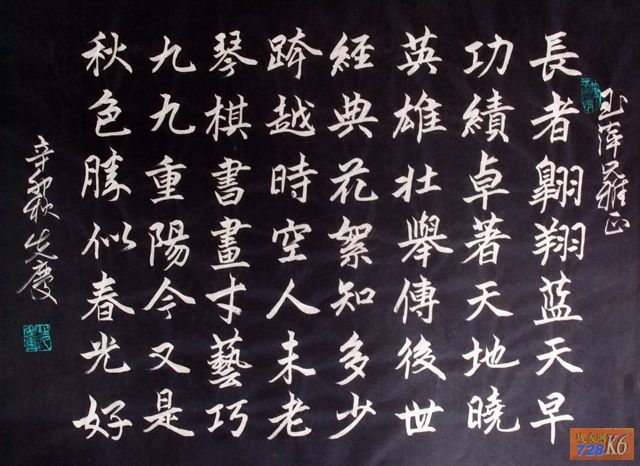 玉萍兄雅正
長者翺翔蓝天早
功績卓著天地曉
英雄壯舉傳後世
經典花絮知多少
跨越時空人未老
琴棋書畫才藝巧
九九重陽今又是
秋色勝似春光好
辛卯秋 先慶
战友网
728K6